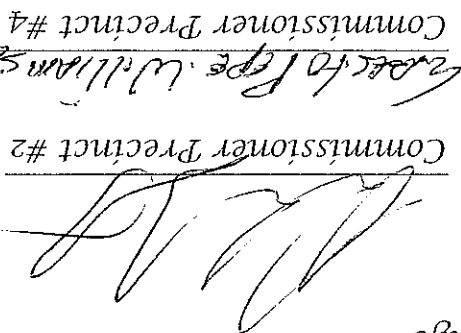 ge
Commissioner Precinct #2
Pepe Williams
Commissioner Precinct #4